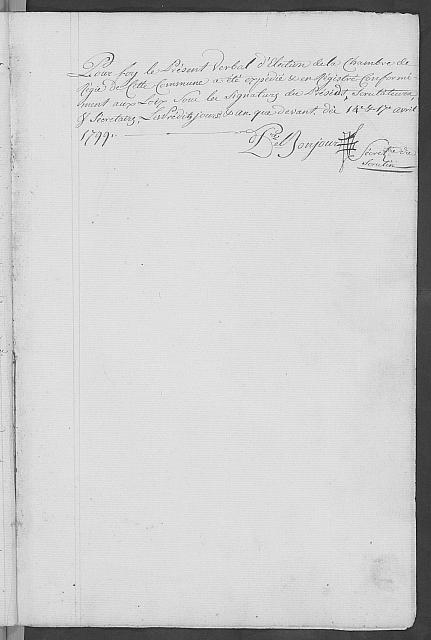 Pour foy le Présent Verbal d'Election de la Chambre de
Régie de Cette Commune a été expédié & en Régistré Conformé
ment aux Loix Sous les Signatures des Président, Scrutateurs,
& Sécretaire, Les prédits jours & an que devant. dit 14e & 17e avril
1799.
Bel Bonjour
Sécretre du
Scrutin